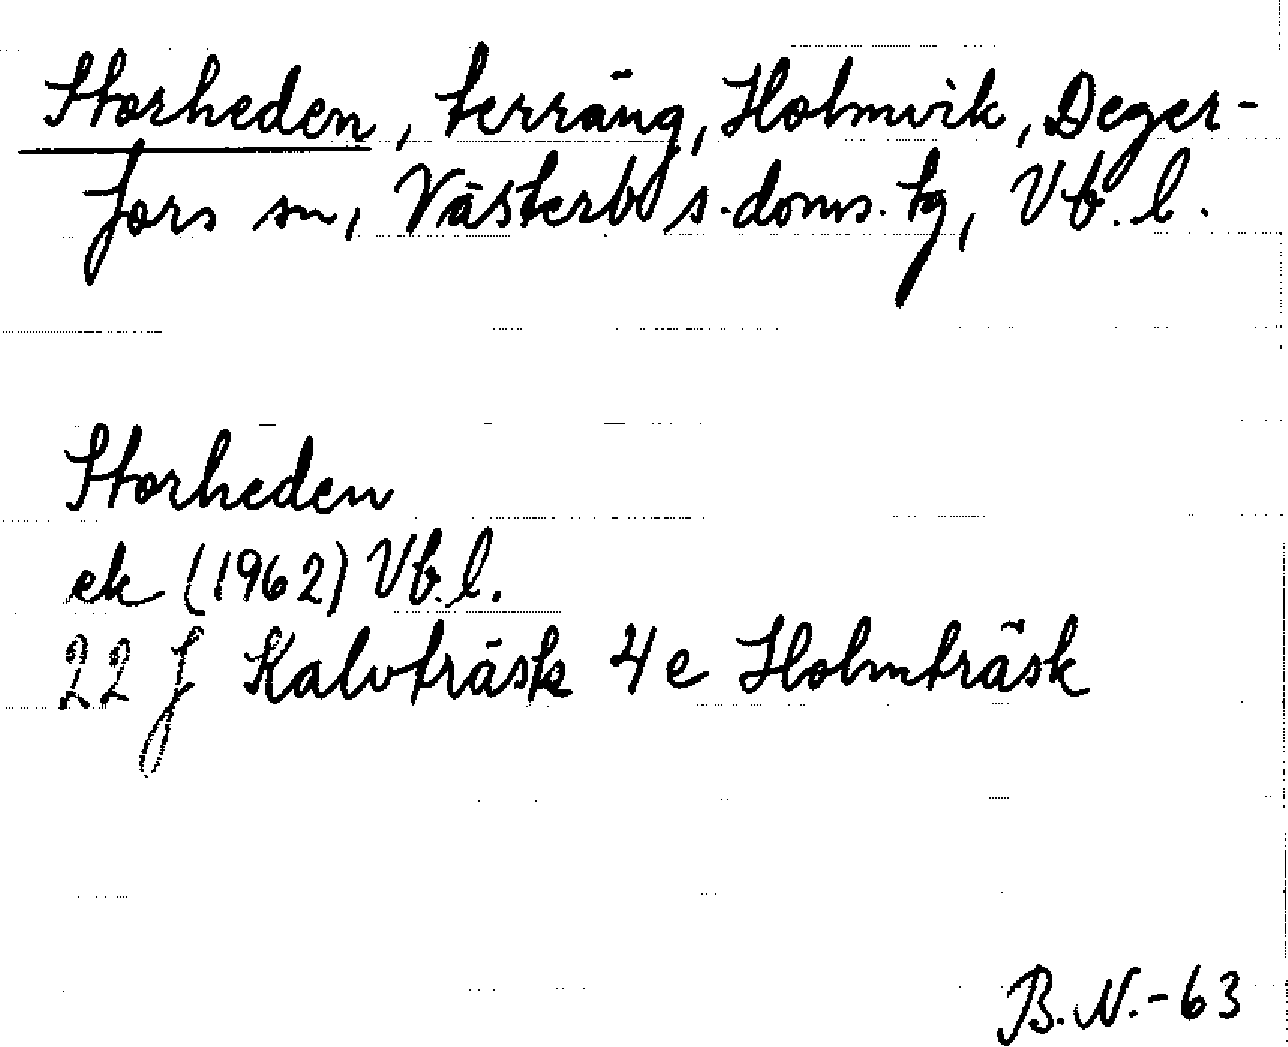 Storheden, terräng, Holmvik, Deger-
fors sn, Västerb s. doms. tg, Vb. l.
Storheden
ek (1962) Vb. l.
22 J Kalvträsk 4e Holmträsk
B.N.-63